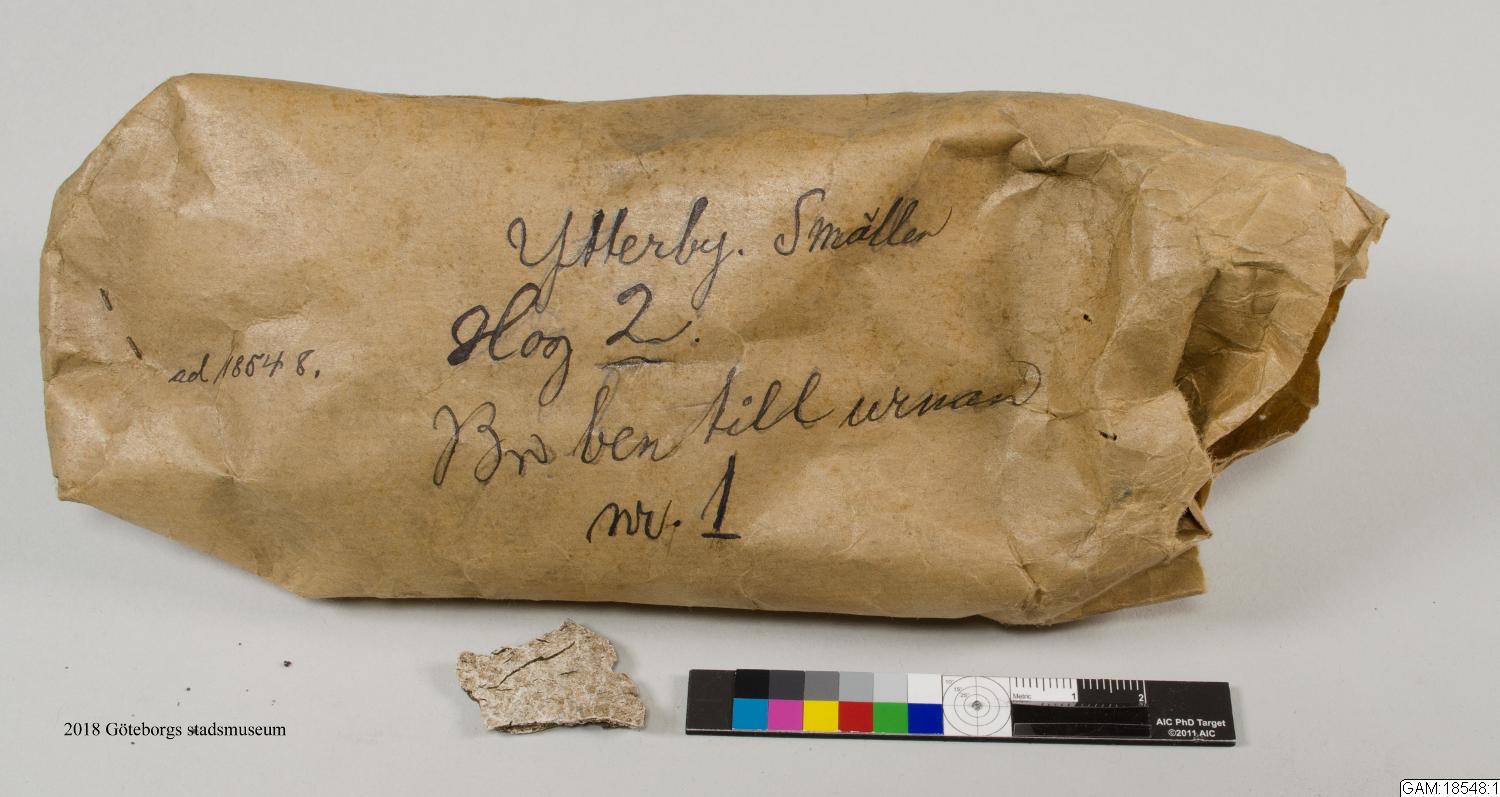 Ytterby. Smällen
Hög 2.
ad 18548.
Br ben till urnan
nr. 1
2018 Göteborgs stadsmuseum
Metric 1 2
AIC PhD Target
©2011 AIC
GAM:18548:1